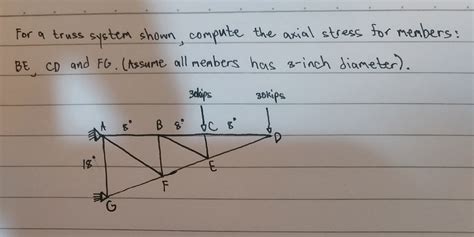 For a truss system shown, compute the axial stress for members:
BE, CD and FG. (Assume all members has 3-inch diameter).
30kips 30kips
A 8" B 8" C 8" D
18"
E
F
G